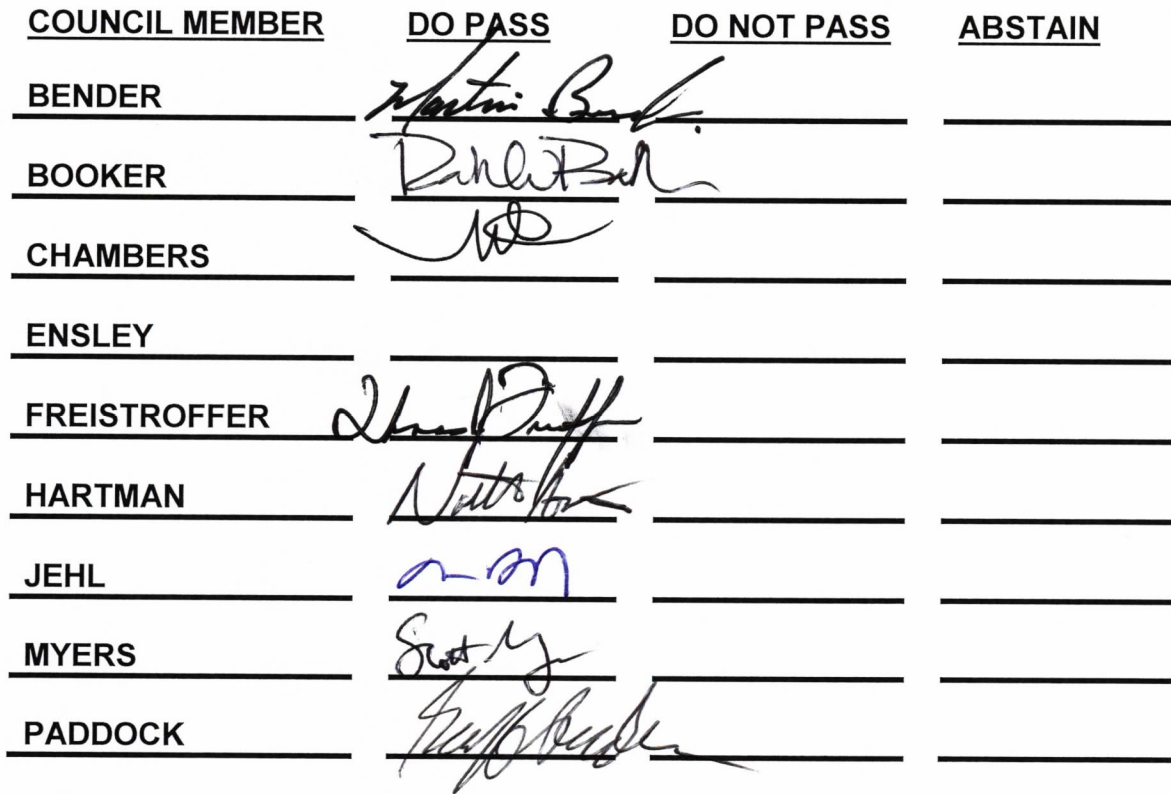 COUNCIL MEMBER DO PASS DO NOT PASS ABSTAIN
BENDER Martin Bend.
BOOKER
CHAMBERS
ENSLEY
FREISTROFFER
HARTMAN
JEHL
MYERS Scott My
PADDOCK